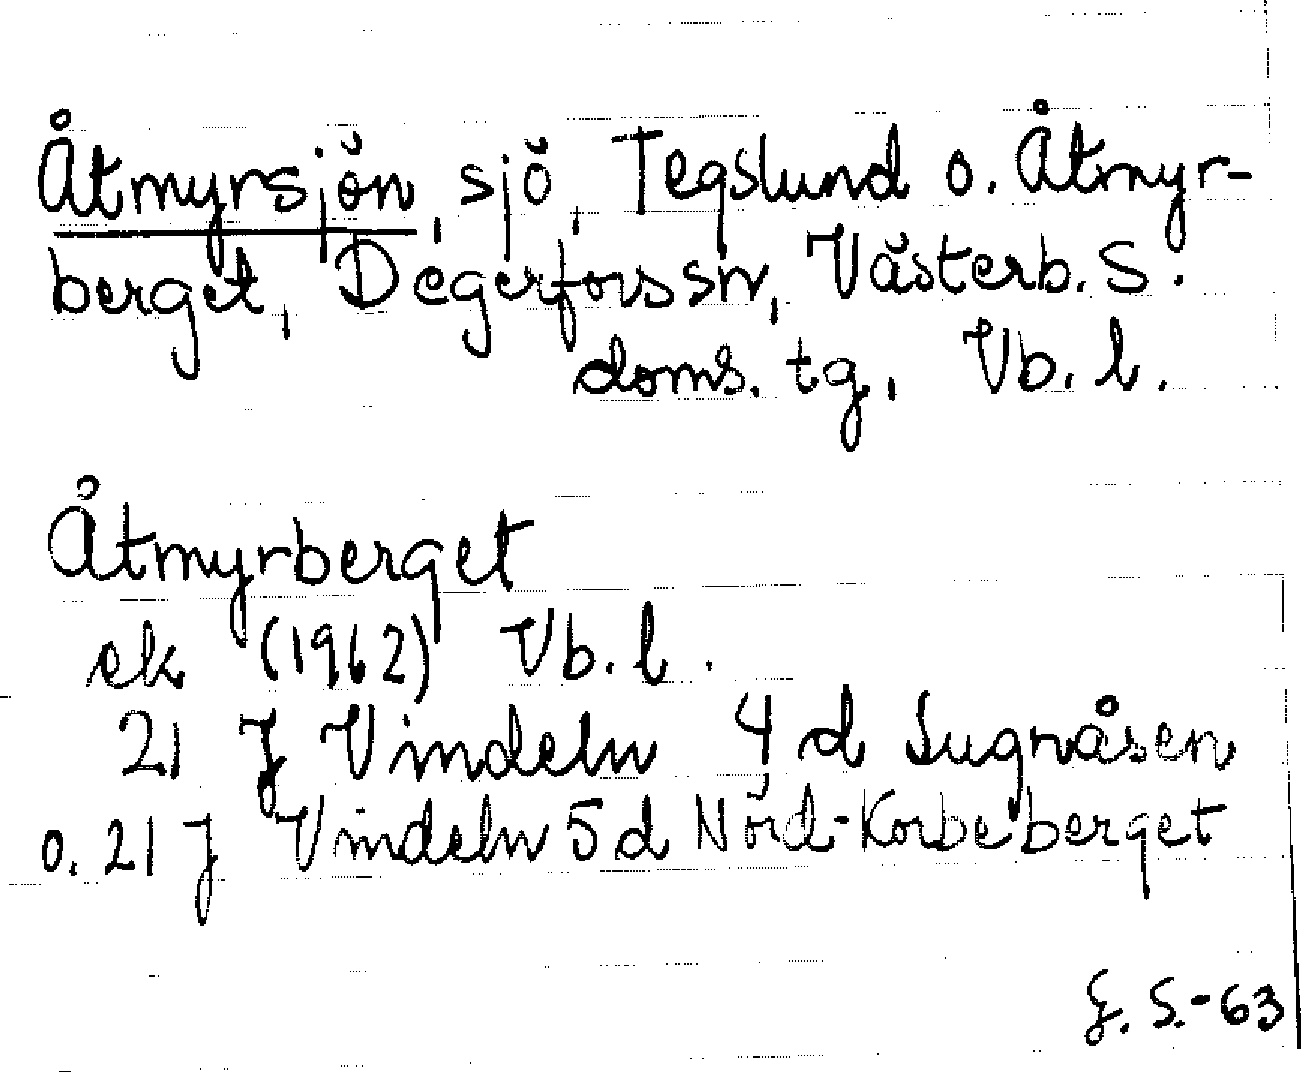 Åtmyrsjön, sjö, Tegslund o. Åtmyr-
berget, Degerfors sn, Västerb. S.
doms. tg, Vb. l.
Åtmyrberget
ek (1962) Vb. l.
21 J Vindeln 4 d Sugnåsen
o. 21 J Vindeln 5 d Nord-Korbeberget
S.-63